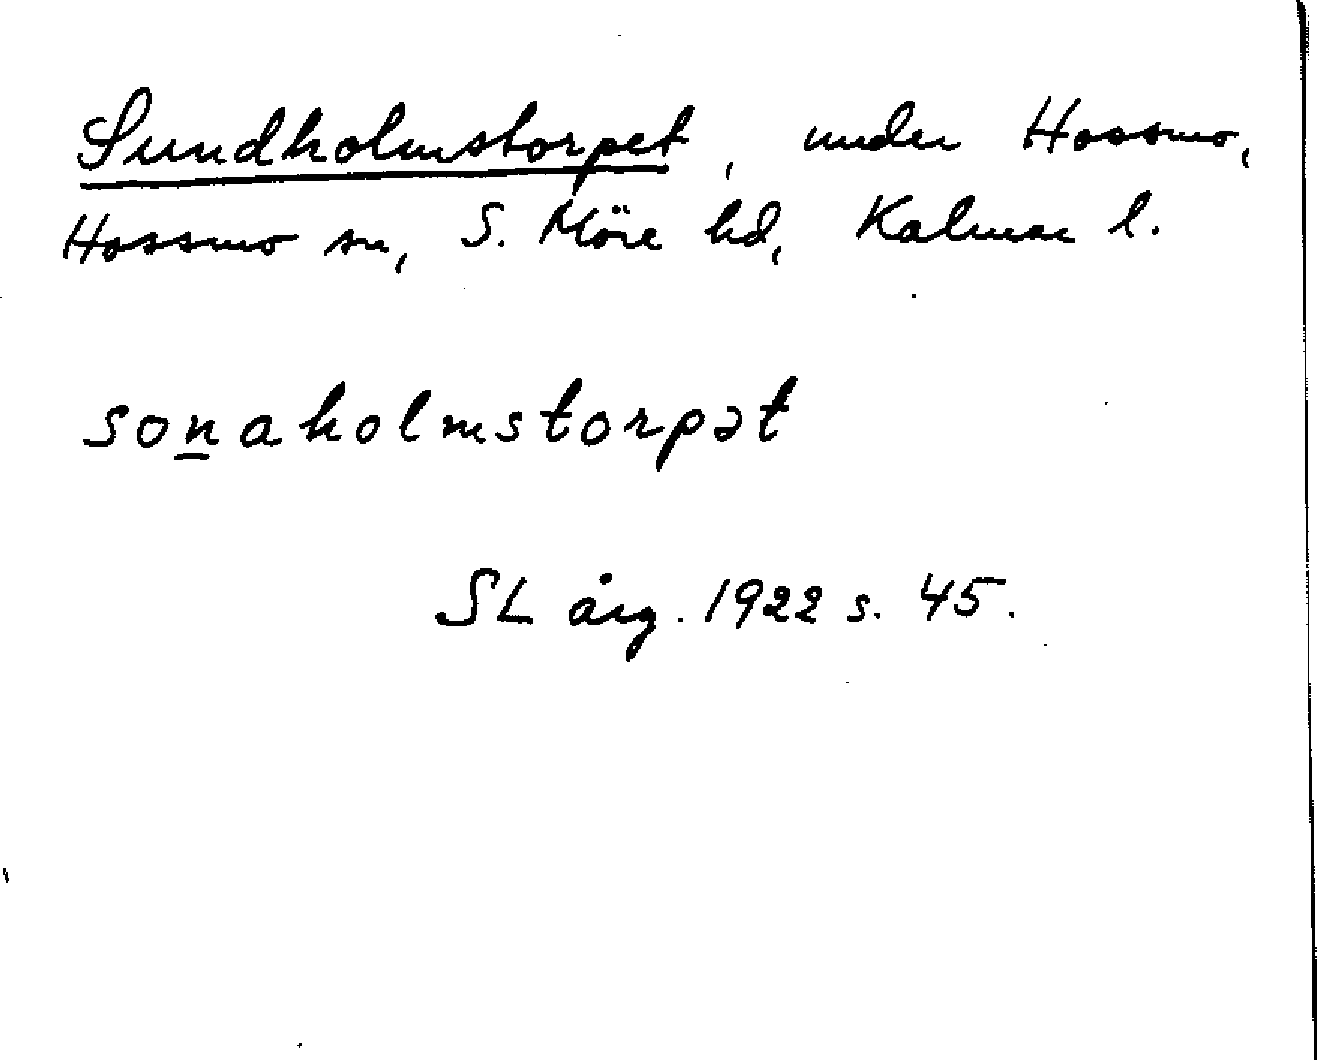 Sundholmstorpet, under Hossmo,
Hossmo sn, S. Möre hd, Kalmar l.
sonaholmstorpət
SL årg. 1922 s. 45.